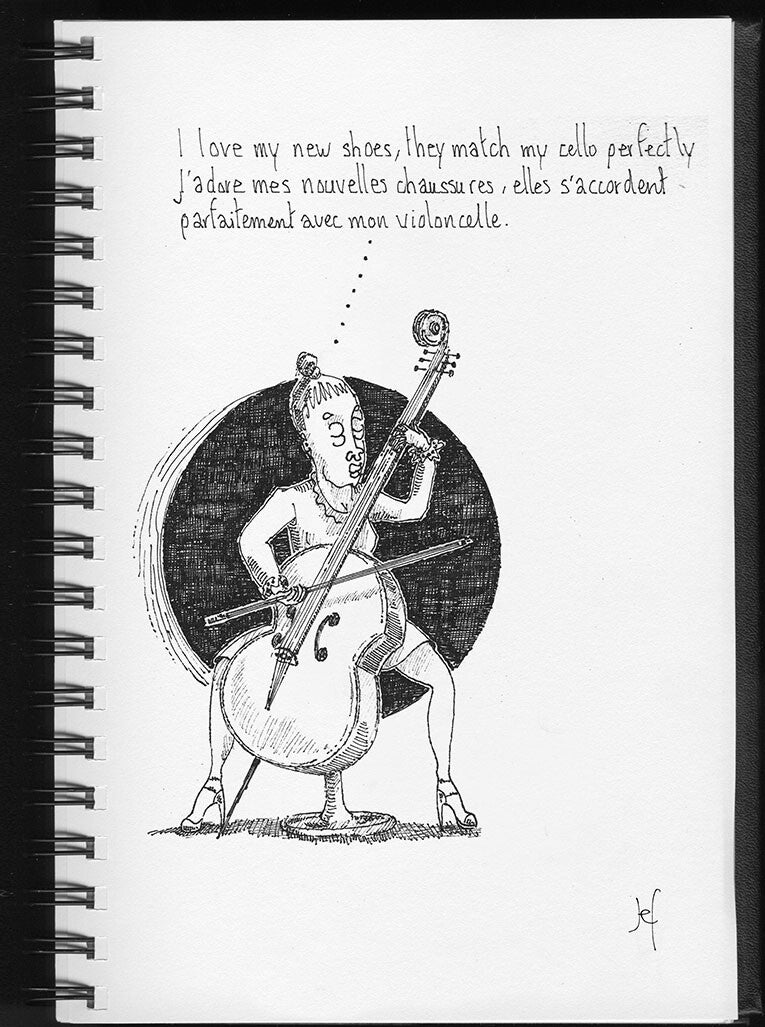 I love my new shoes, they match my cello perfectly
J'adore mes nouvelles chaussures, elles s'accordent
parfaitement avec mon violoncelle.
Jef